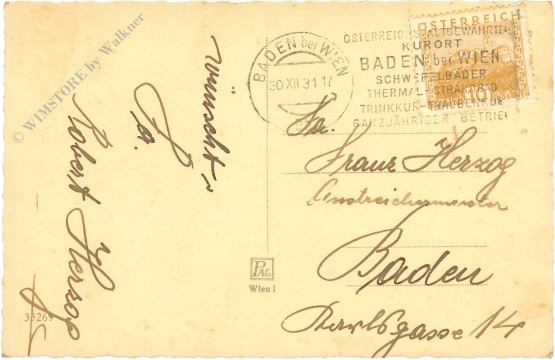 © WIMSTORE by Walkner
wünscht
Fa.
Robert Herzog
33269
BADEN bei WIEN
30 XII 31 17
ÖSTERREICHS ALTBEWÄHRTER
KURORT
BADEN bei WIEN
SCHWEFELBÄDER
THERMAL-STRANDBAD
TRINKKUR-TRAUBENKUR
GANZJÄHRIGER BETRIEB
ÖSTERREICH
Fa.
Franz Herzog
Anstreichermeister
Baden
Karlsgasse 14
PAG
Wien I